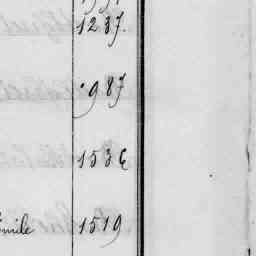 1237.
987
1536
Emile 1519